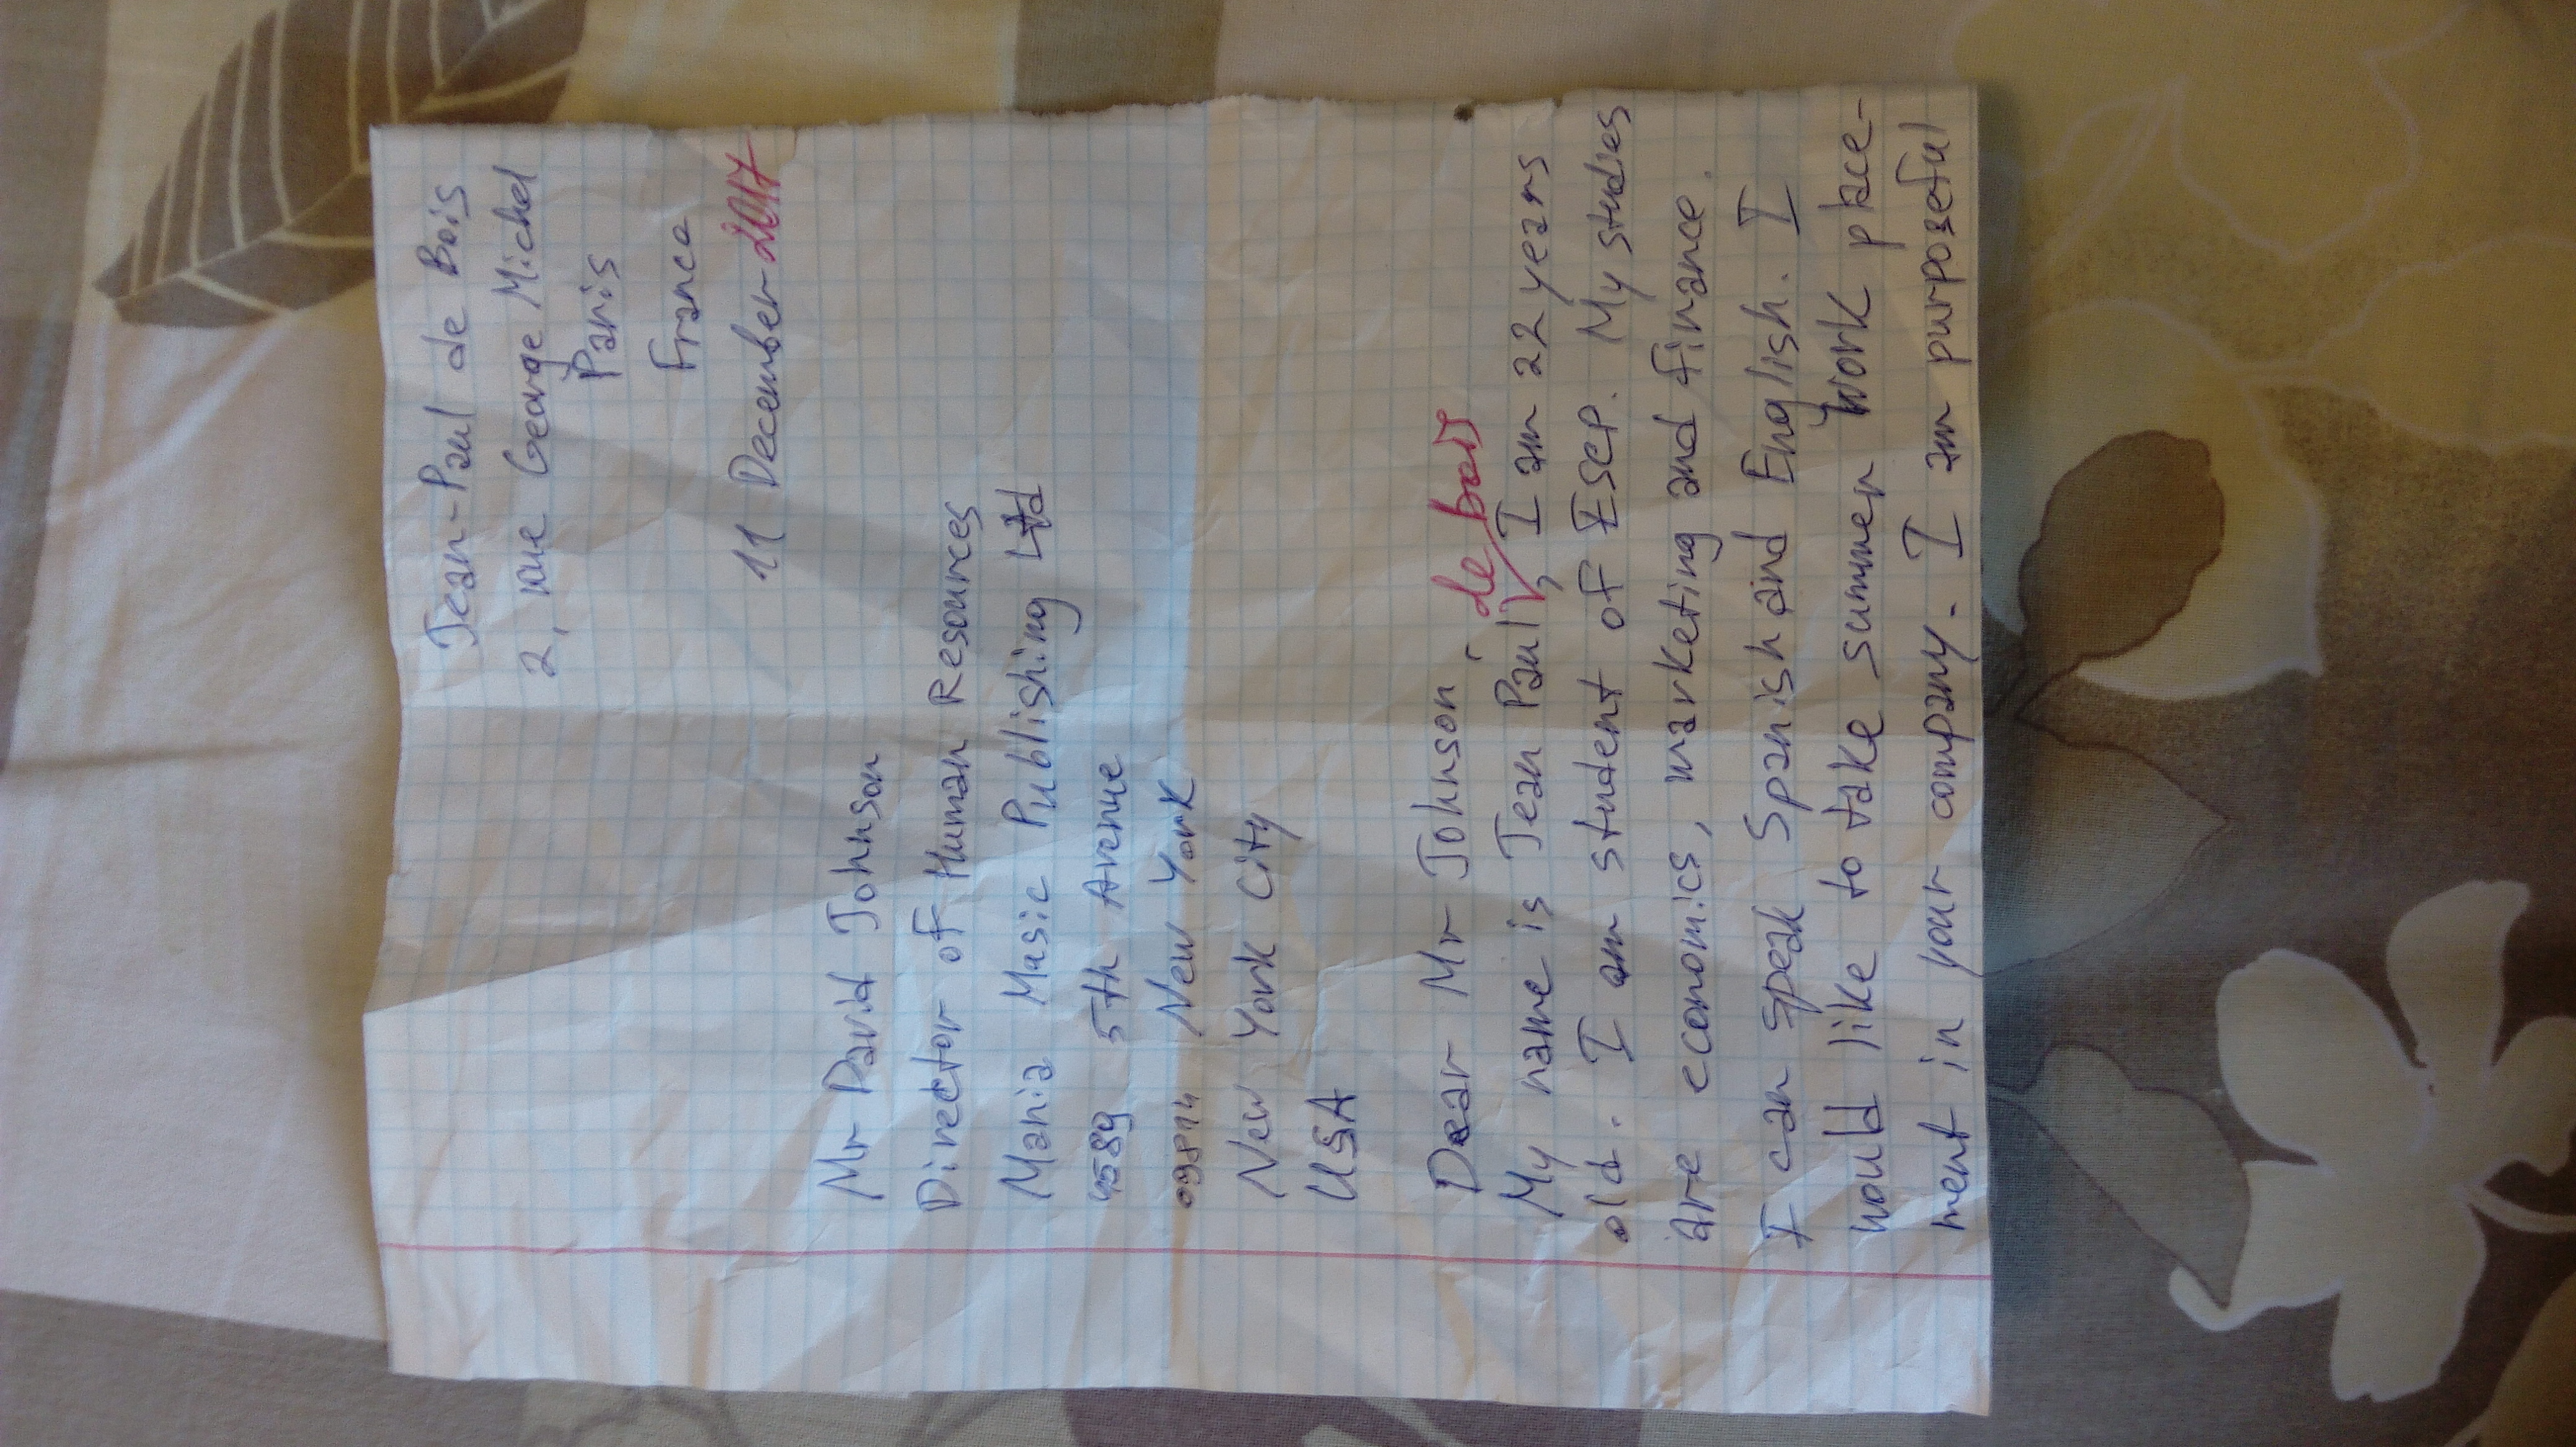 Jean-Paul de Bois
2, rue George Michel
Paris
France
11 December 2017
Mr David Johnson
Director of Human Resources
Mania Music Publishing Ltd
4589 5th Avenue
New York
New York City
USA
Dear Mr Johnson
de bois
My name is Jean Paul, I am 22 years
old. I am student of ESEP. My studies
are economics, marketing and finance.
I can speak Spanish and English. I
would like to take summer work place-
ment in your company. I am purposeful